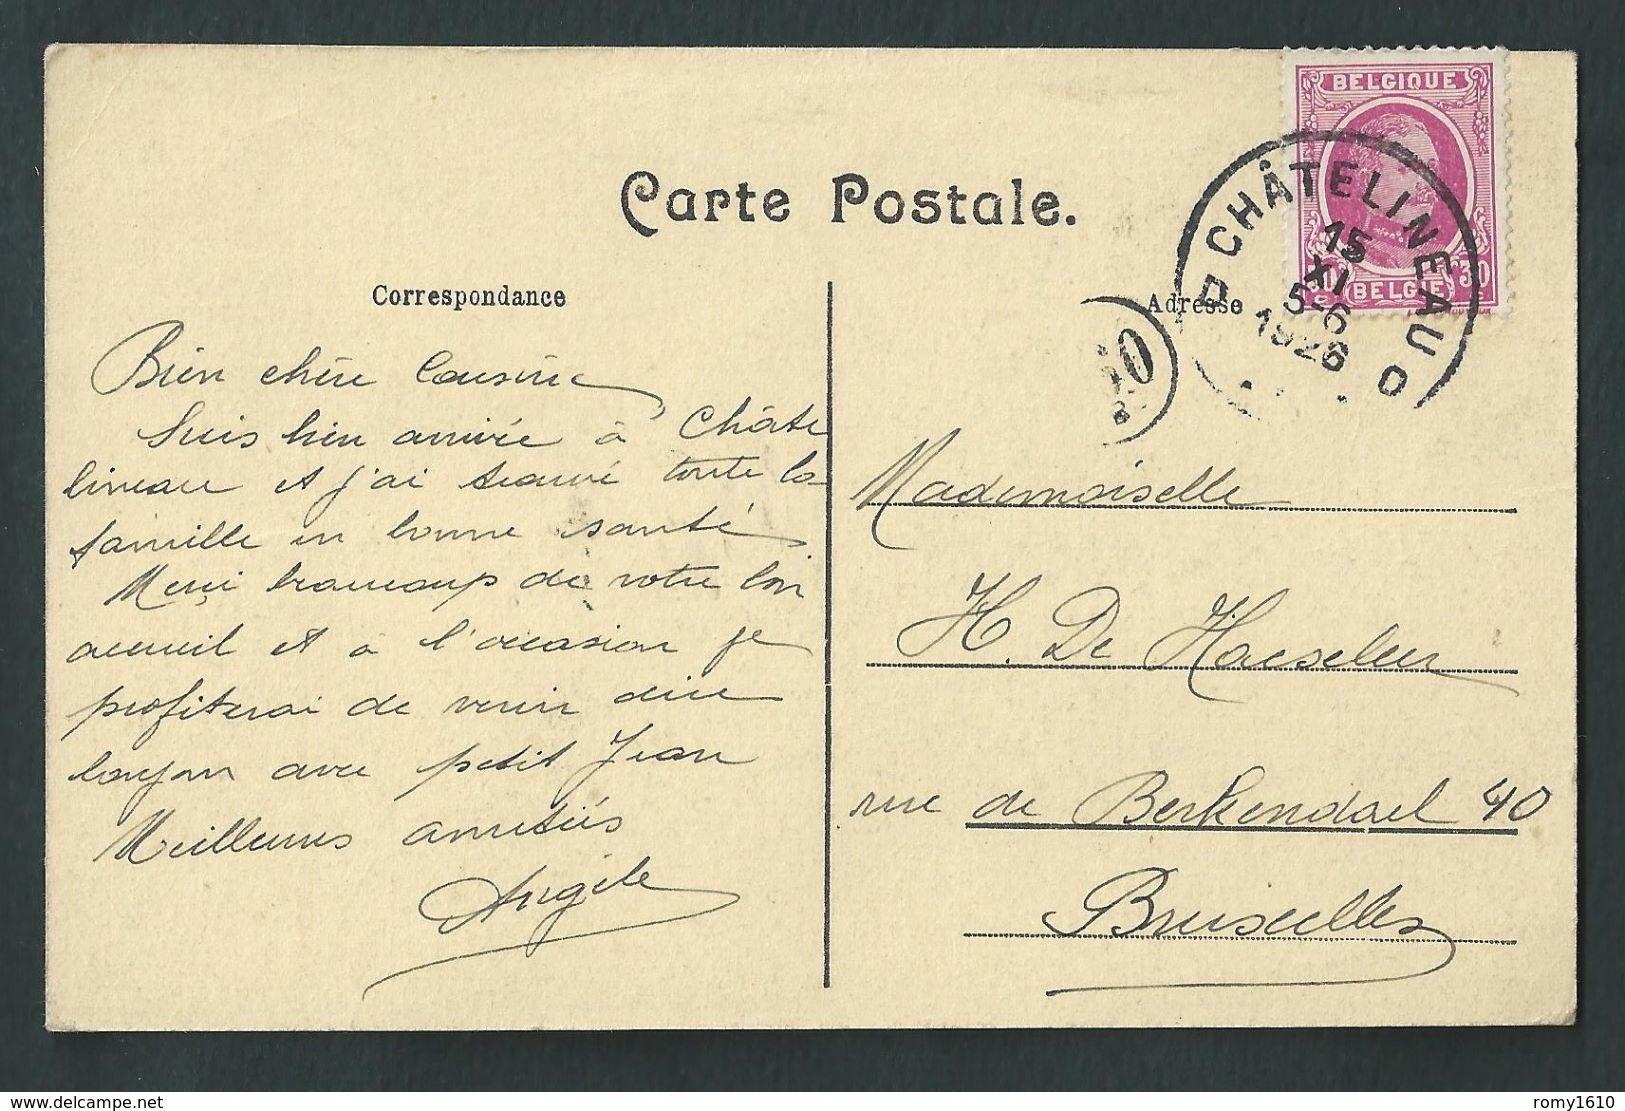 Carte Postale.
Correspondance
Adresse
BELGIQUE
30
BELGIË
CHÂTELINEAU
15
XI
5-6
1926
Bien chère Cousine
Suis bien arrivée à Châte
lineau et j'ai trouvé toute la
famille en bonne santé
Merci beaucoup de votre bon
accueil et à l'occasion je
profiterai de venir dire
bonjour avec petit Jean
Meilleures amitiés
Angèle
Mademoiselle
H. De Haeseleer
rue de Berkendael 40
Bruxelles
delcampe.net
romy1610